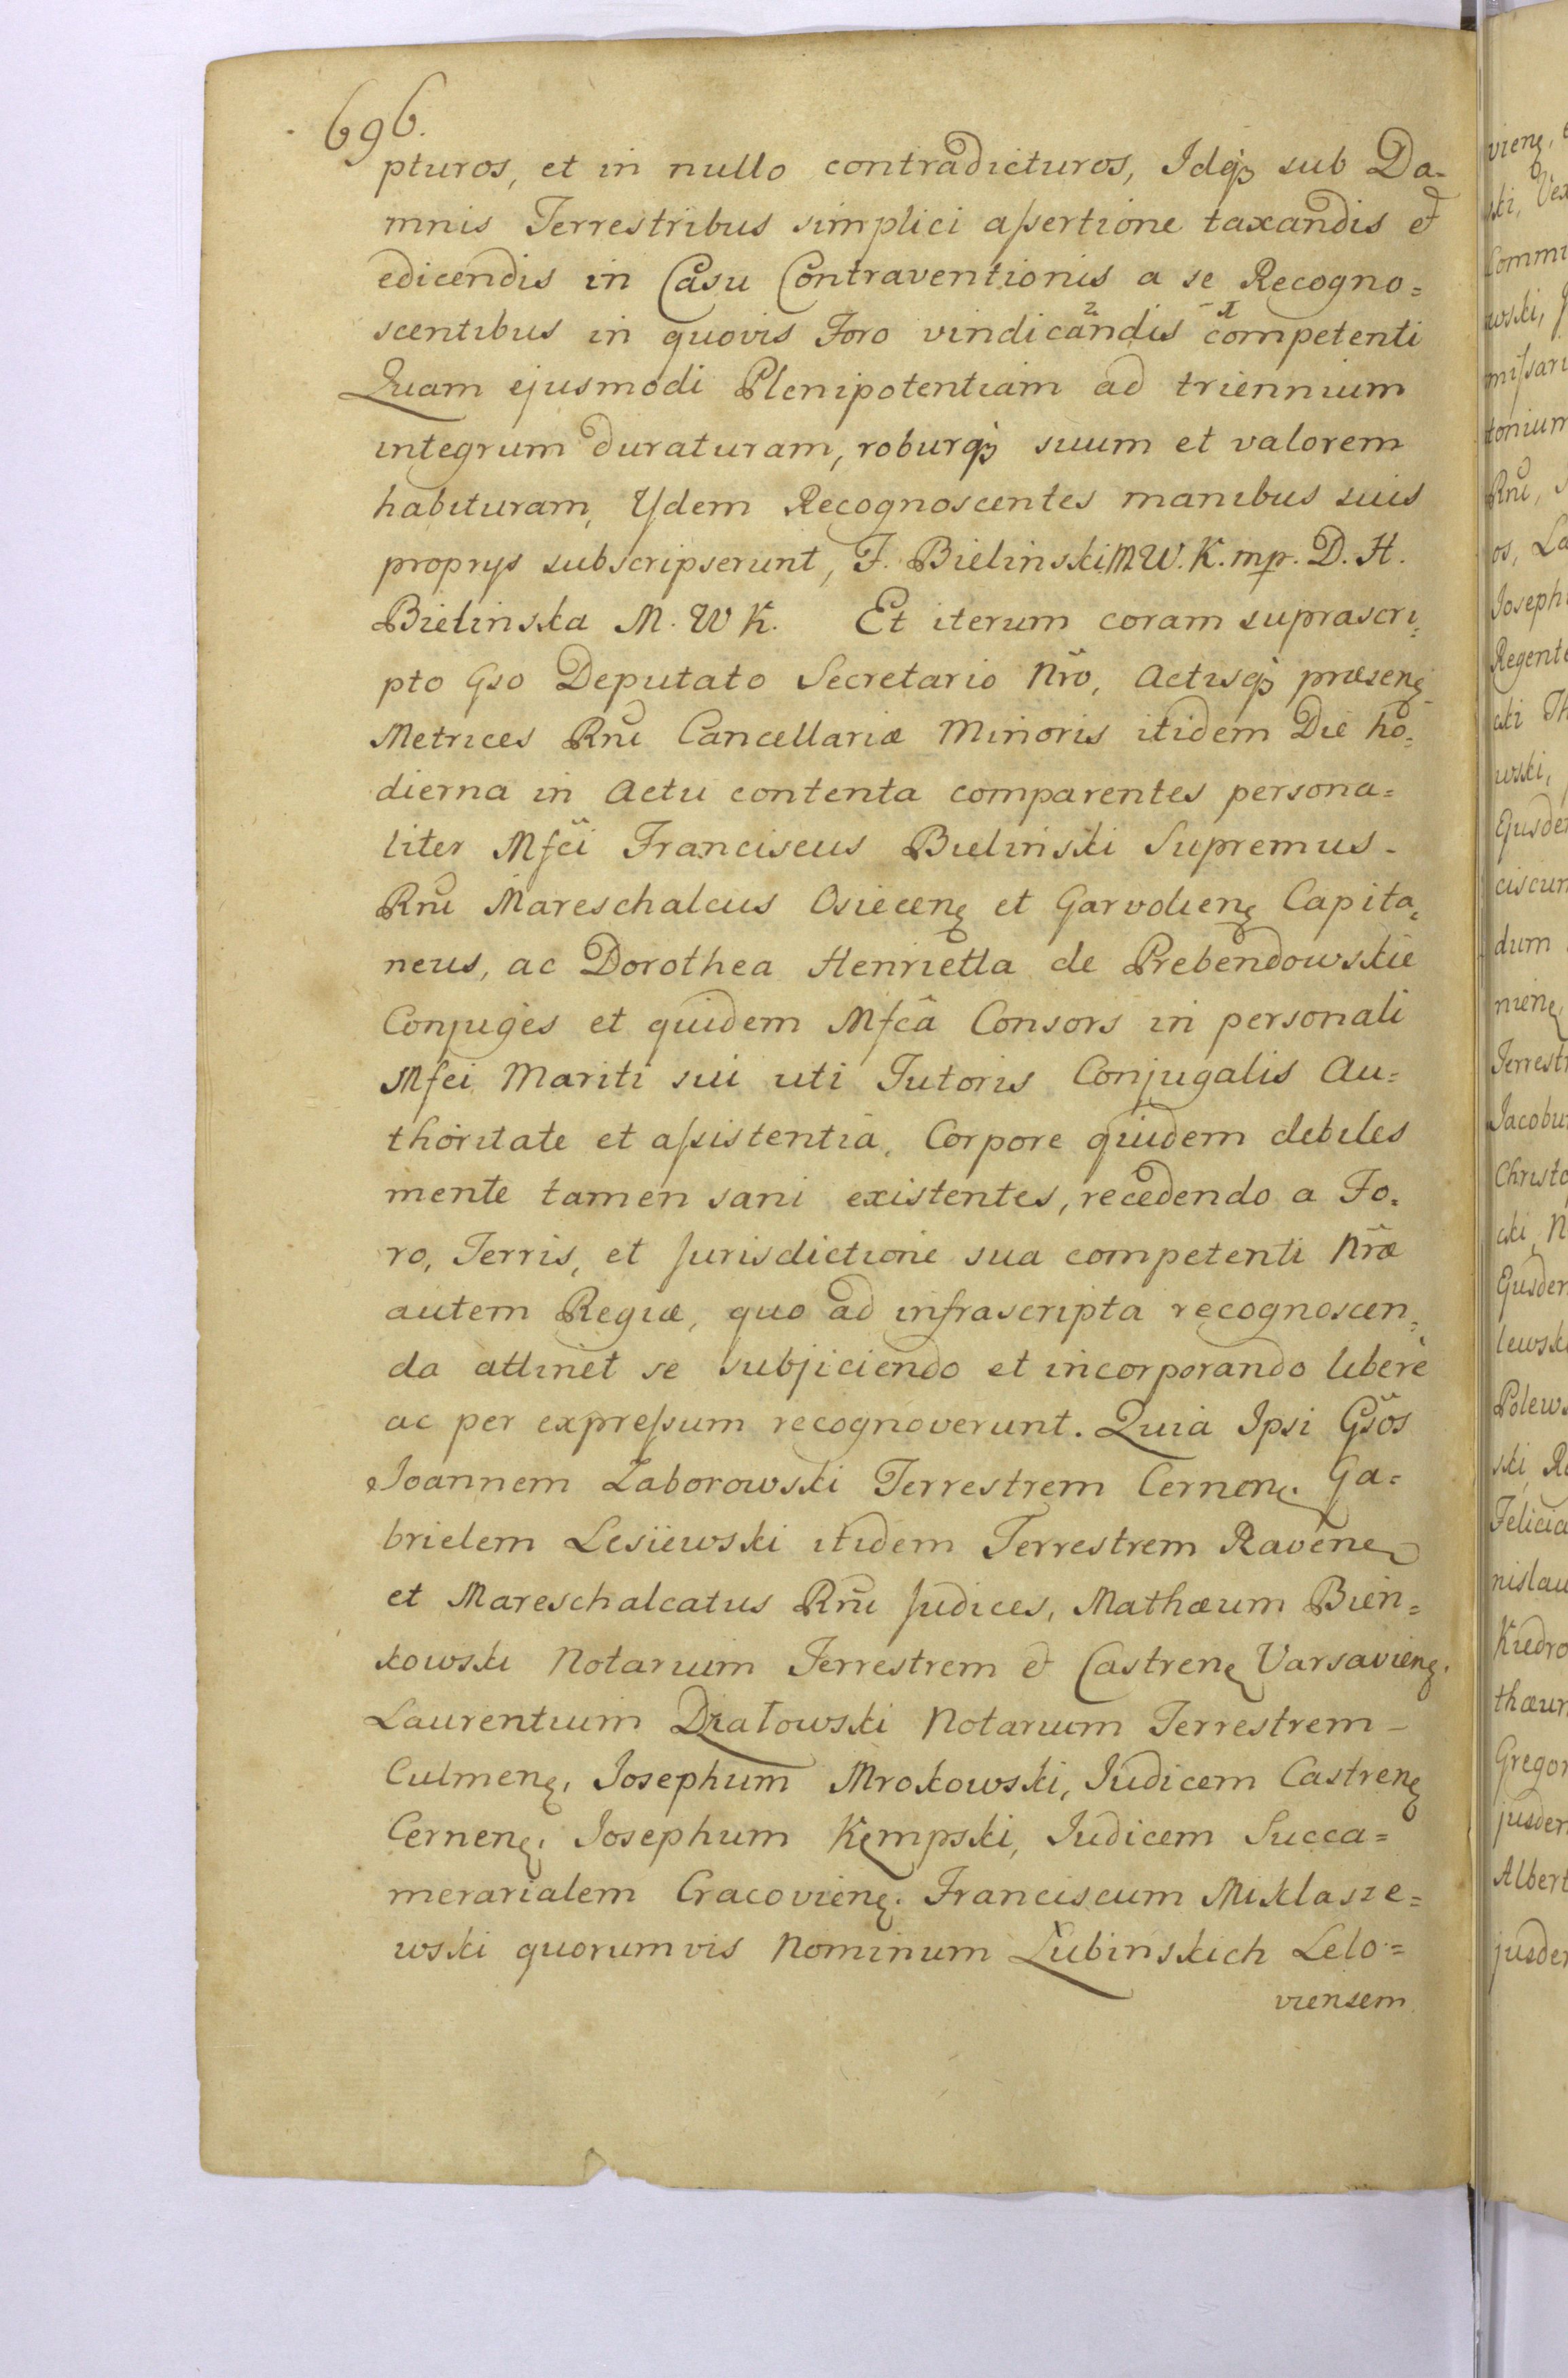 696.
pturos, et in nullo contradicturos, Idqꝫ sub Da-
mnis Terrestribus simplici aſsertione taxandis et
edicendis in Casu Contraventionis a se Recogno=
scentibus in quovis Foro vindicandis² competenti¹
Quam ejusmodi Plenipotentiam ad triennium
integrum duraturam, roburqꝫ suum et valorem
habituram, Ijdem Recognoscentes manibus suis
proprijs subscripserunt, F. Bielinski MW.K. mp. D. H.
Bielinska M. W K. Et iterum coram suprascri=
pto Gso Deputato Secretario Nr̃o, Actisqꝫ præsenę
Metrices Rnĩ Cancellariæ Minoris itidem Die ho=
dierna in Actu contenta comparentes persona=
liter Mfci Franciscus Bielinski Supremus-
Rnĩ Mareschalcus Osiecenę et Garvolienę Capita=
neus, ac Dorothea Henrietta de Prebendowskie
Conjuges et quidem Mfcâ Consors in personali
Mfci Mariti sui uti Tutoris Conjugalis Au=
thoritate et aſsistentia, Corpore quidem debiles
mente tamen sani existentes, recedendo a Fo=
ro, Terris, et Jurisdictione sua competenti Nr̃æ
autem Regiæ, quo ad infrascripta recognoscen=
da attinet se subjiciendo et incorporando liberè
ac per expreſsum recognoverunt. Quia Ipsi Gs̃os
Joannem Zaborowski Terrestrem Cernenę. Ga=
brielem Lesiewski itidem Terrestrem Ravenę
et Mareschalcatus Rnĩ Judices, Mathæum Bien=
kowski Notarium Terrestrem et Castrenę Varsavienę.
Laurentium Działowski Notarium Terrestrem-
Culmenę, Josephum Mrokowski, Judicem Castrenę
Cernenę, Josephum Kęmpski, Judicem Succa=
merarialem Cracovienę. Franciscum Miklasze=
wski quorumvis Nominum Łubinskich Lelo=
viensem